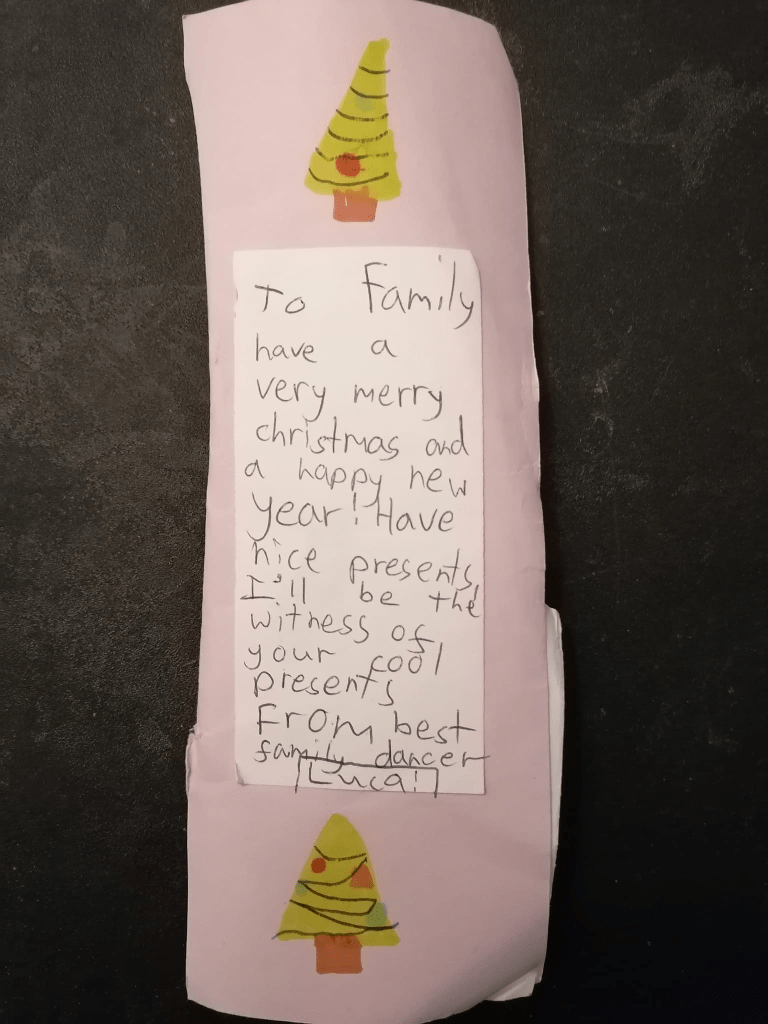 To Family
have a
very merry
christmas and
a happy new
year! Have
nice presents,
I'll be the
witness of
your cool
presents
From best
family dancer
Luca!